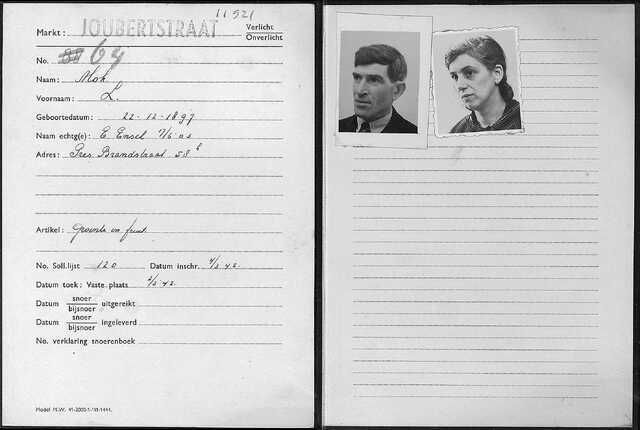 11521
Markt: JOUBERTSTRAAT Verlicht
Onverlicht
No. 64
Naam: Mok
Voornaam: L.
Geboortedatum: 22-12-1897
Naam echtg(e): E. Ensel
Adres: Pres Brandstraat 58
Artikel: Groente en fruit
No. Soll.lijst 120 Datum inschr.
Datum toek: Vaste plaats
Datum snoer
bijsnoer uitgereikt
Datum snoer
bijsnoer ingeleverd
No. verklaring snoerenboek
Model M.W.